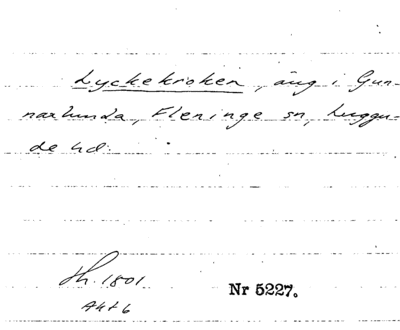 Lyckekroken, äng i Gun-
narlunda, Fleninge sn, Luggu-
de hd.
Sh. 1801
Akt 6
Nr 5227.